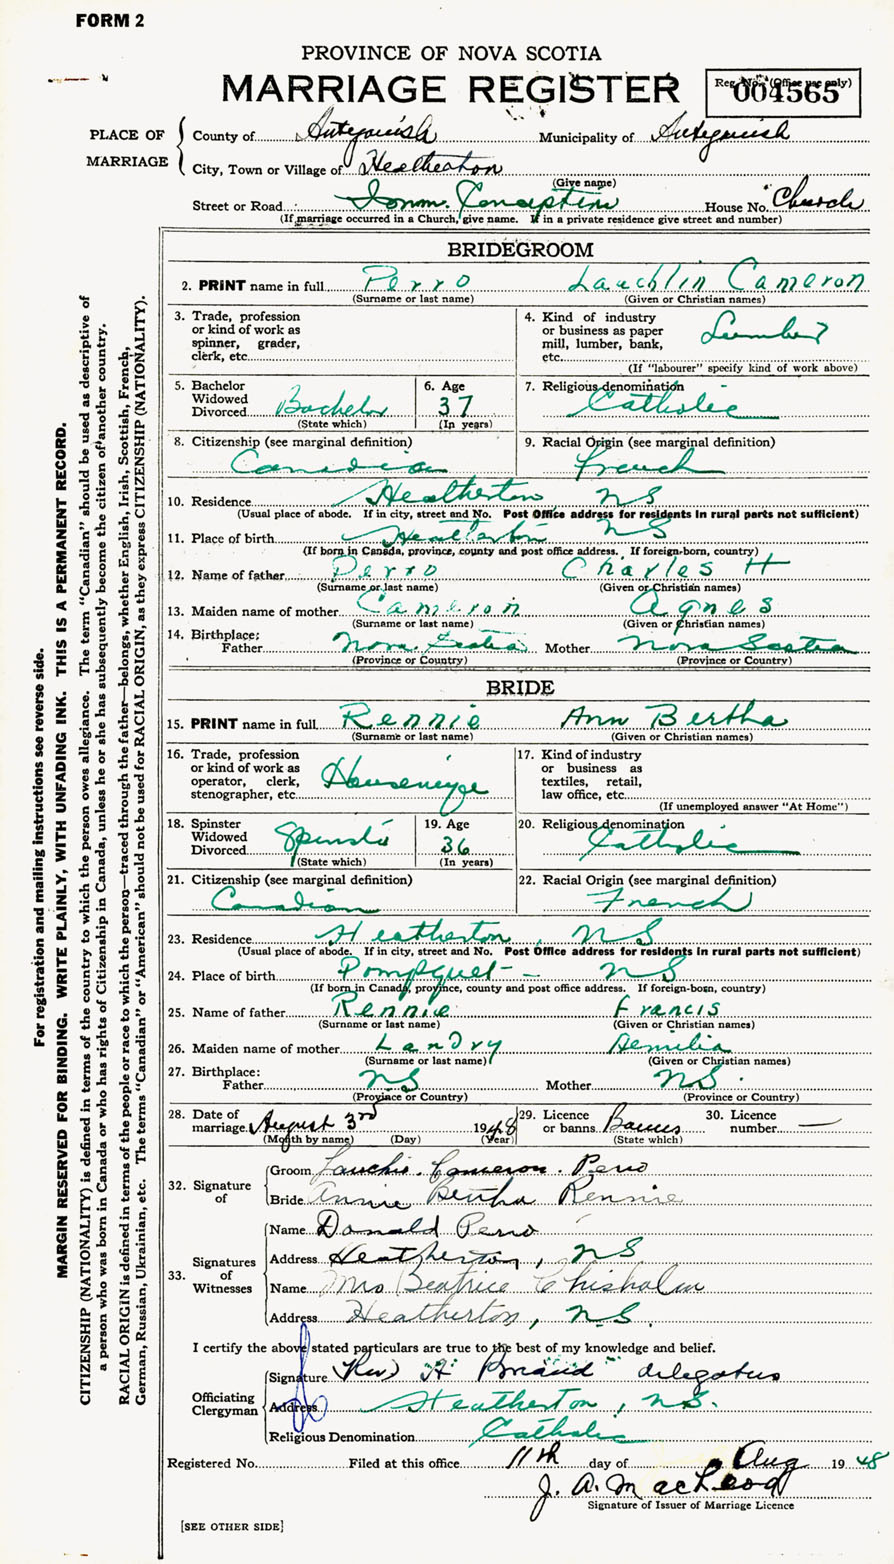 FORM 2
PROVINCE OF NOVA SCOTIA
MARRIAGE REGISTER
Reg. No. (Office use only)
004565
PLACE OF MARRIAGE
County of Antigonish Municipality of Antigonish
City, Town or Village of Heatherton
(Give name)
Street or Road Imm. Conception House No. Church
(If marriage occurred in a Church, give name. If in a private residence give street and number)
BRIDEGROOM
2. PRINT name in full Perro Lauchlin Cameron
(Surname or last name) (Given or Christian names)
3. Trade, profession or kind of work as spinner, grader, clerk, etc.
4. Kind of industry or business as paper mill, lumber, bank, etc. Lumber
(If "labourer" specify kind of work above)
5. Bachelor Widowed Divorced Bachelor
(State which)
6. Age 37
(In years)
7. Religious denomination Catholic
8. Citizenship (see marginal definition) Canadian
9. Racial Origin (see marginal definition) French
10. Residence Heatherton NS
(Usual place of abode. If in city, street and No. Post Office address for residents in rural parts not sufficient)
11. Place of birth Heatherton NS
(If born in Canada, province, county and post office address. If foreign-born, country)
12. Name of father Perro Charles H
(Surname or last name) (Given or Christian names)
13. Maiden name of mother Cameron Agnes
(Surname or last name) (Given or Christian names)
14. Birthplace:
Father Nova Scotia Mother Nova Scotia
(Province or Country) (Province or Country)
BRIDE
15. PRINT name in full Rennie Ann Bertha
(Surname or last name) (Given or Christian names)
16. Trade, profession or kind of work as operator, clerk, stenographer, etc.
17. Kind of industry or business as textiles, retail, law office, etc.
(If unemployed answer "At Home")
18. Spinster Widowed Divorced Spinster
(State which)
19. Age 36
(In years)
20. Religious denomination Catholic
21. Citizenship (see marginal definition) Canadian
22. Racial Origin (see marginal definition) French
23. Residence Heatherton, NS
(Usual place of abode. If in city, street and No. Post Office address for residents in rural parts not sufficient)
24. Place of birth Pompquet - NS
(If born in Canada, province, county and post office address. If foreign-born, country)
25. Name of father Rennie Francis
(Surname or last name) (Given or Christian names)
26. Maiden name of mother Landry Aemilia
(Surname or last name) (Given or Christian names)
27. Birthplace:
Father NS Mother NS.
(Province or Country) (Province or Country)
28. Date of marriage August 3rd 1948
(Month by name) (Day) (Year)
29. Licence or banns Banns
(State which)
30. Licence number —
32. Signature of
Groom Lauchie Cameron Perro
Bride Annie Bertha Rennie
33. Signatures of Witnesses
Name Donald Perro
Address Heatherton, NS
Name Mrs Beatrice Chisholm
Address Heatherton, N.S.
I certify the above stated particulars are true to the best of my knowledge and belief.
Officiating Clergyman
Signature Rev) "H" delegatus
Address Heatherton, N.S.
Religious Denomination Catholic
Registered No. Filed at this office 11th day of Aug 1948
J. A. MacLeod
Signature of Issuer of Marriage Licence
[SEE OTHER SIDE]
For registration and mailing instructions see reverse side.
MARGIN RESERVED FOR BINDING. WRITE PLAINLY, WITH UNFADING INK. THIS IS A PERMANENT RECORD.
CITIZENSHIP (NATIONALITY) is defined in terms of the country to which the person owes allegiance. The term "Canadian" should be used as descriptive of
a person who was born in Canada or who has rights of Citizenship in Canada, unless he or she has subsequently become the citizen of another country.
RACIAL ORIGIN is defined in terms of the people or race to which the person—traced through the father—belongs, whether English, Irish, Scottish, French,
German, Russian, Ukrainian, etc. The terms "Canadian" or "American" should not be used for RACIAL ORIGIN, as they express CITIZENSHIP (NATIONALITY).